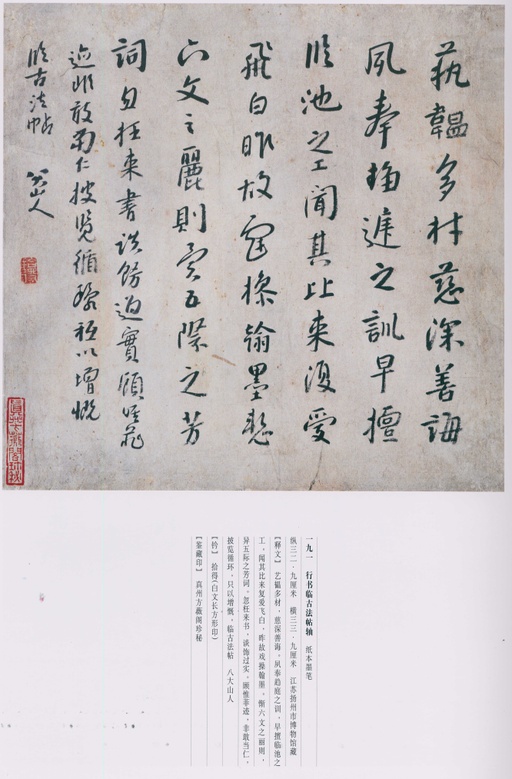 蓺韞多材慈深善誨
夙奉趨進之訓早擅
臨池之工聞其比来復愛
飛白昨故戲操翰墨慙
六文之麗則異五際之芳
詞勿枉来書談飾過實顧惟菲
迹非敢當仁披覧循環祗以增慨
臨古法帖 八大山人
一九一 行书临古法帖轴 纸本墨笔
纵三二·九厘米 横三三·九厘米 江苏扬州市博物馆藏
【释文】 艺韫多材，慈深善诲，夙奉趋庭之训，早擅临池之
工，闻其比来复爱飞白，昨故戏操翰墨。惭六文之丽则，
异五际之芳词，忽枉来书，谈饰过实，顾惟菲迹，非敢当仁，
披览循环，只以增慨。临古法帖 八大山人
【钤】 拾得(白文长方形印)
【鉴藏印】 真州方 阁珍秘